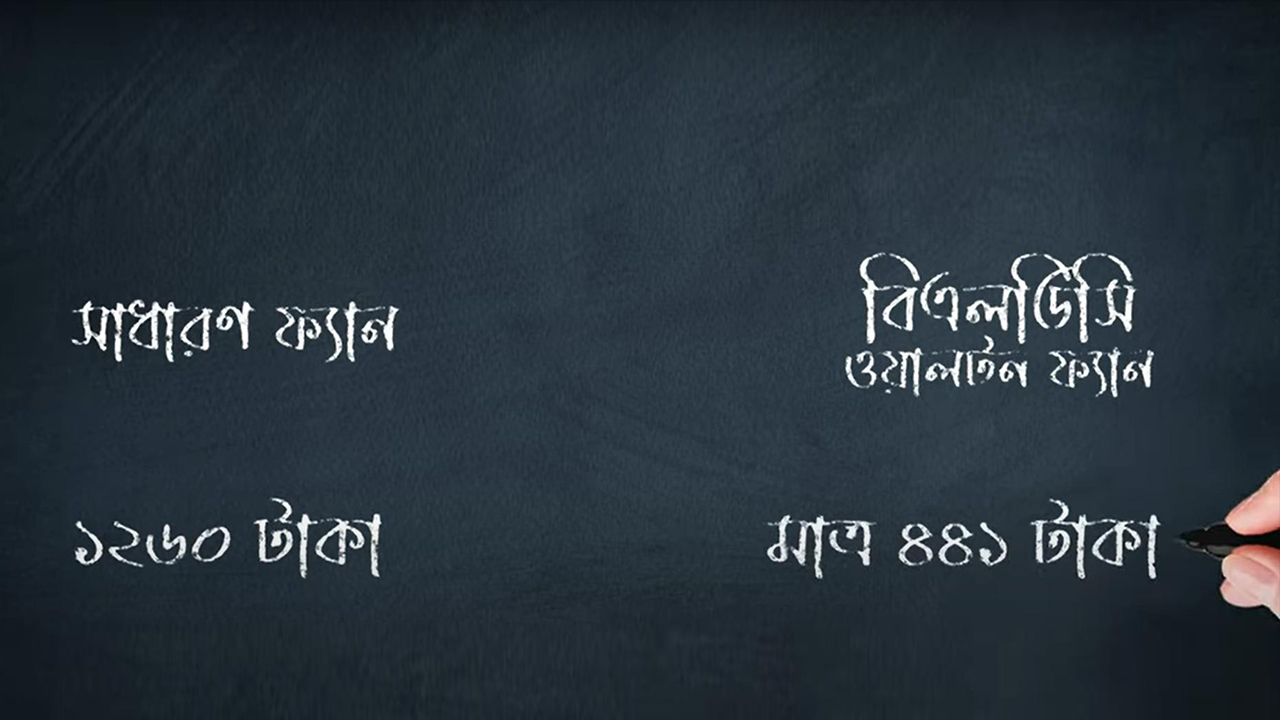 সাধারণ ফ্যান
বিএলডিসি
ওয়ালটন ফ্যান
১২৬০ টাকা
মাত্র ৪৪১ টাকা